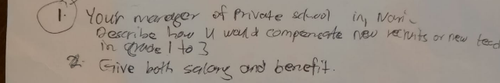 1. Your manager of Private school in, Nari-
Describe how U would compensate new recruits or new teac
in grade 1 to 3
2. Give both salary and benefit.